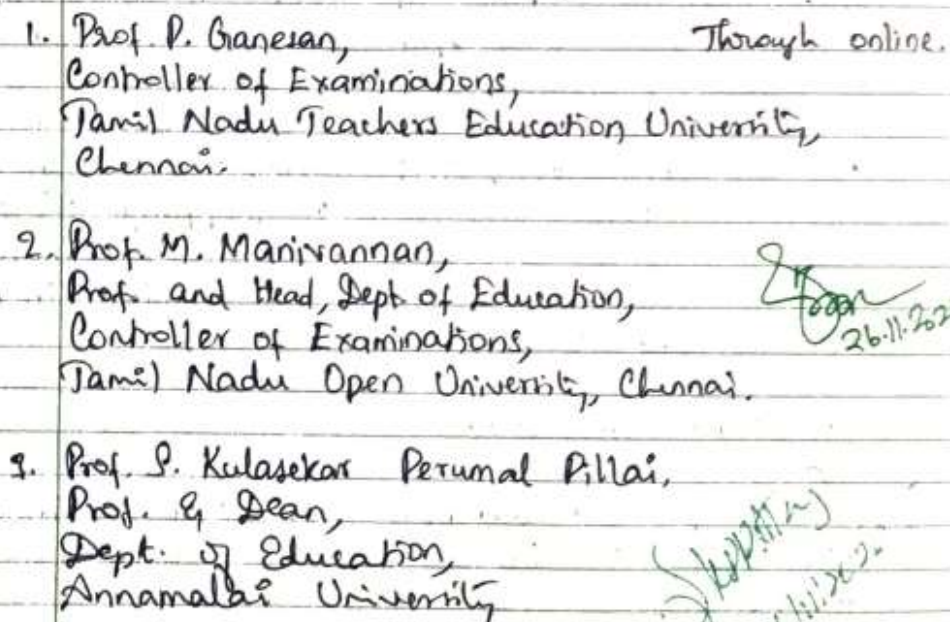 1. Prof. P. Ganesan, Through online.
Controller of Examinations,
Tamil Nadu Teachers Education University,
Chennai.
2. Prof. M. Manivannan,
Prof. and Head, Dept of Education,
Controller of Examinations,
26.11.202
Tamil Nadu Open University, Chennai.
3. Prof. S. Kulasekar Perumal Pillai,
Prof. & Dean,
Dept. of Education,
Annamalai University